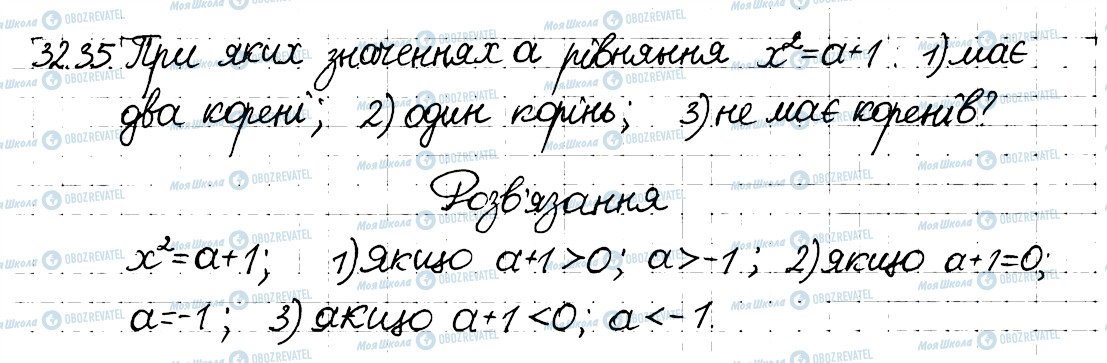 32.35. При яких значеннях a рівняння x²=a+1: 1) має
два корені; 2) один корінь; 3) не має коренів?
Розв'язання
x²=a+1; 1) якщо a+1>0; a>-1; 2) якщо a+1=0;
a=-1; 3) якщо a+1<0; a<-1